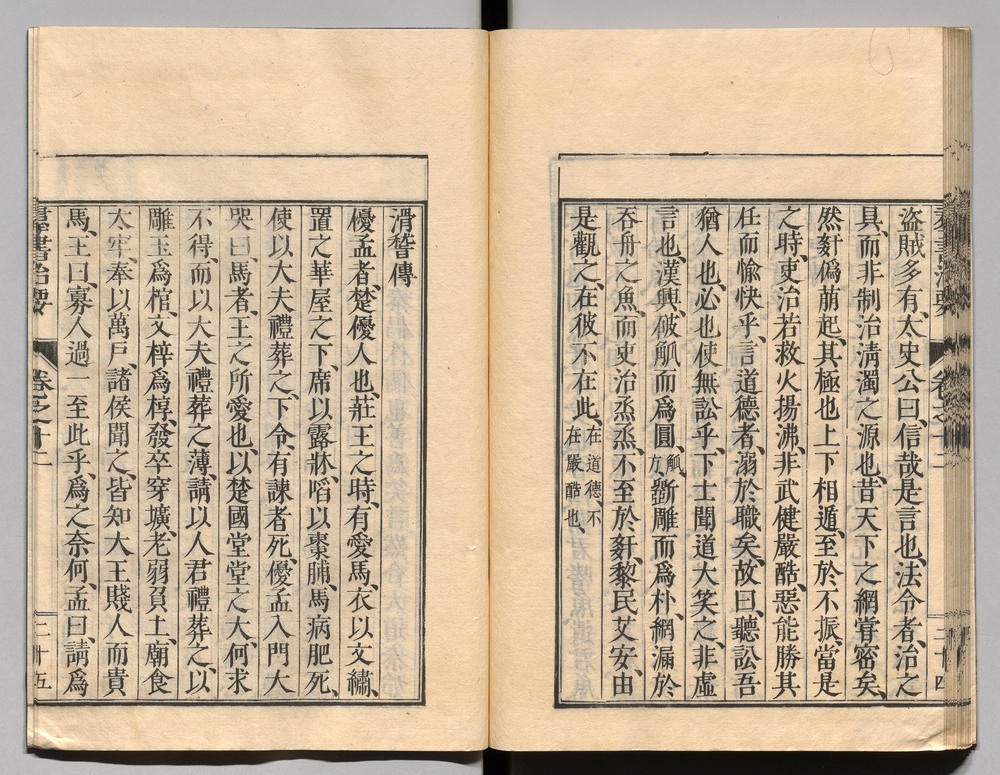 盜賊多有、太史公曰信哉是言也、法令者、治之
具、而非制治淸濁之源也、昔天下之網甞密矣、
然姧僞萠起、其極也上下相遁、至於不振、當是
之時、吏治若救火揚沸、非武健嚴酷、惡能勝其
任而愉快乎、言道德者、溺於職矣、故曰、聽訟吾
猶人也、必也使無訟乎、下士聞道大笑之、非虛
言也、漢興、破觚而爲圓、觚、方、斵雕而爲朴、網漏於
吞舟之魚、而吏治烝烝、不至於姧、黎民艾安、由
是觀之、在彼不在此、在道德、不在嚴酷也、
群書治要 卷之十二 二十四
滑稽傳
優孟者、楚優人也、莊王之時、有愛馬、衣以文繡、
置之華屋之下、席以露牀、啗以棗脯、馬病肥死、
使以大夫禮葬之、下令有諫者死、優孟入門大
哭曰、馬者、王之所愛也、以楚國堂堂之大、何求
不得、而以大夫禮葬之薄、請以人君禮葬之、以
雕玉爲棺、文梓爲椁、發卒穿壙、老弱負土、廟食
太牢、奉以萬戶、諸侯聞之、皆知大王賤人而貴
馬、王曰、寡人過一至此乎、爲之奈何、孟曰、請爲
羣書治要 卷之十二 二十五